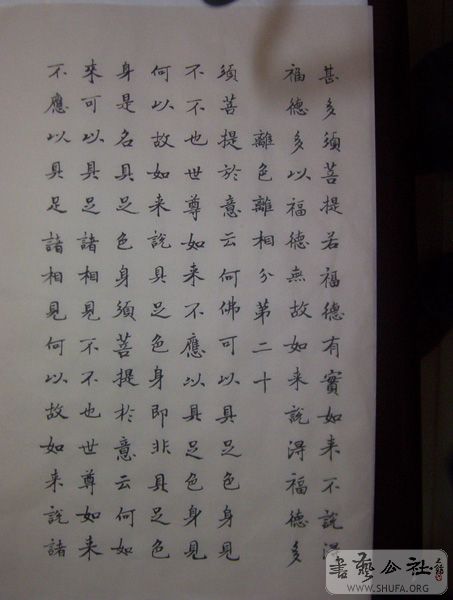 甚多須菩提若福德有實如来不說得
福德多以福德無故如来說得福德多
離色離相分第二十
須菩提於意云何佛可以具足色身見
不不也世尊如来不應以具足色身見
何以故如来說具足色身即非具足色
身是名具足色身須菩提於意云何如
來可以具足諸相見不不也世尊如来
不應以具足諸相見何以故如来說諸
書藝公社
WWW.SHUFA.ORG